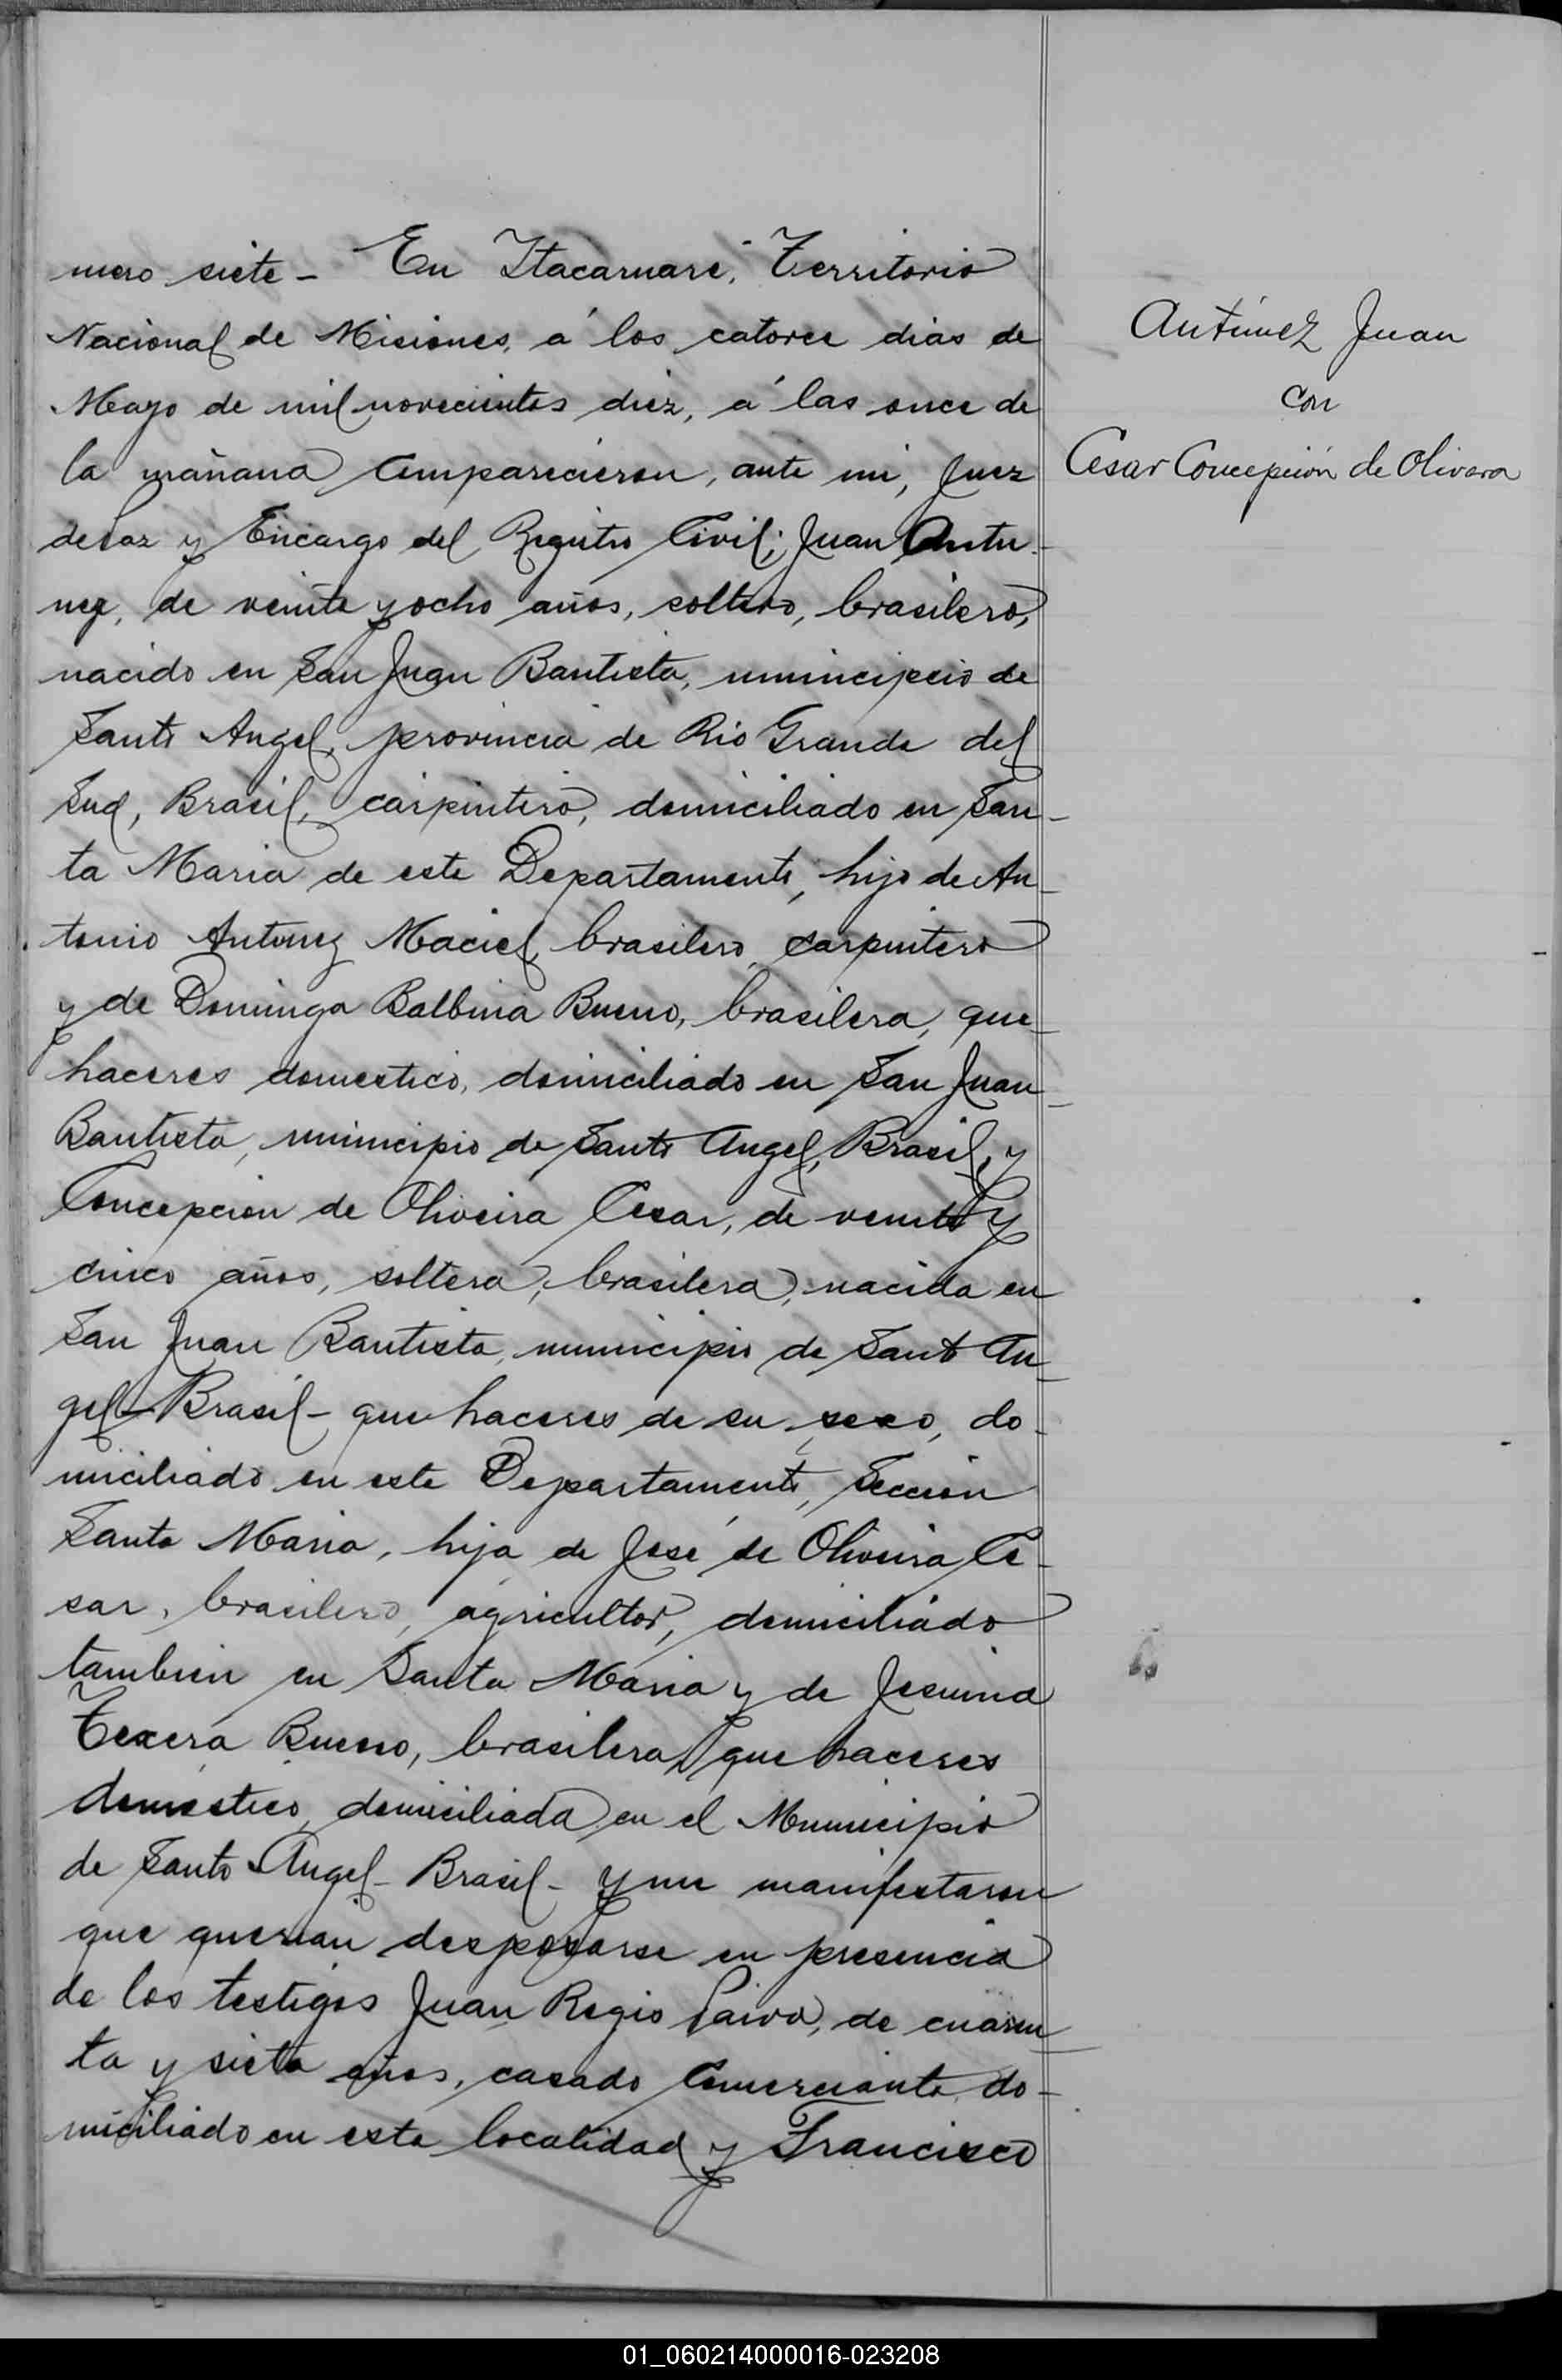 mero siete - En Itacaruaré, Territorio
Nacional de Misiones, á los catorce dias de
Mayo de mil novecientos diez, á las once de
la mañana comparecieron, ante mi, Juez
de Paz y Encargo del Registro Civil; Juan Antu-
nez, de veinte y ocho años, soltero, brasilero,
nacido en San Juan Bautista, municipio de
Santo Angel, provincia de Rio Grande del
Sud, Brasil, carpintero, domiciliado en San-
ta Maria de este Departamento, hijo de An-
tonio Antunez Maciel, brasilero, carpintero
y de Dominga Balbina Bueno, brasilera, que-
haceres domestico, domiciliado en San Juan
Bautista, municipio de Santo Angel, Brasil, y
Concepcion de Oliveira Cesar, de veinte y
cinco años, soltera, brasilera, nacida en
San Juan Bautista, municipio de Santo An-
gel - Brasil - que haceres de su sexo, do-
miciliado en este Departamento, Sección
Santa Maria, hija de José de Oliveira Ce-
sar, brasilero, agricultor, domiciliado
tambien en Santa Maria y de Jesuina
Texera Bueno, brasilera, que haceres
domestico, domiciliada en el Municipio
de Santo Angel - Brasil - y me manifestaron
que querian desposarse en presencia
de los testigos Juan Regis Paiva, de cuaren-
ta y siete años, casado comerciante, do-
miciliado en esta localidad y Francisco
Antúnez Juan
con
Cesar Concepción de Olivera
01_060214000016-023208